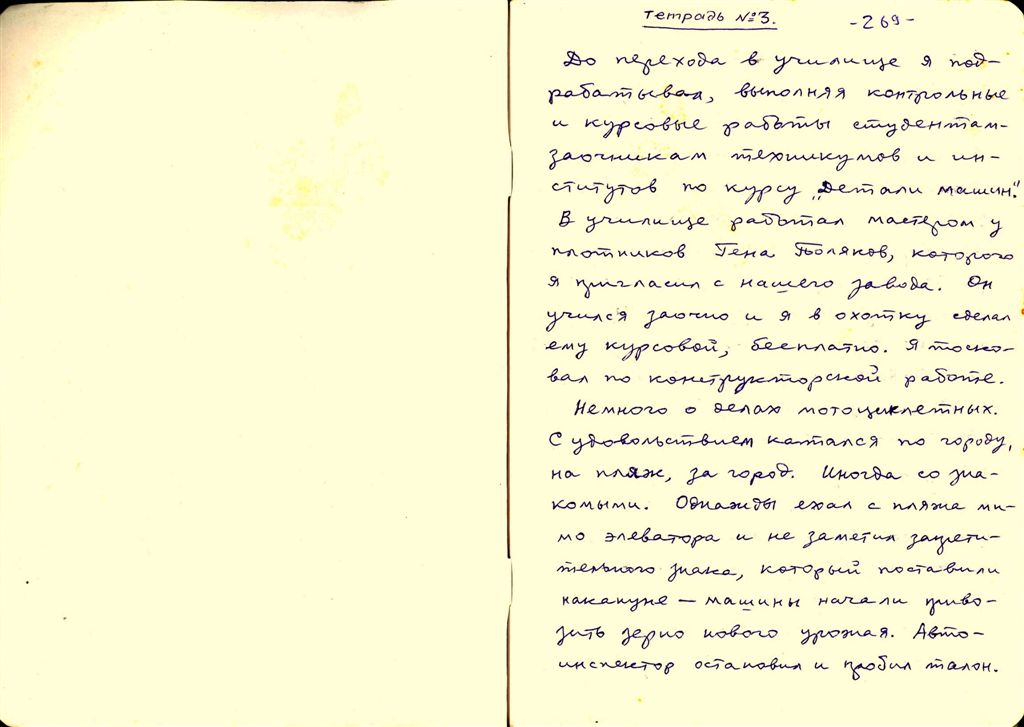 Тетрадь №3.
-269-
До перехода в училище я под-
рабатывал, выполняя контрольные
и курсовые работы студентам-
заочникам техникумов и ин-
ститутов по курсу „Детали машин".
В училище работал мастером у
плотников Гена Поляков, которого
я пригласил с нашего завода. Он
учился заочно и я в охотку сделал
ему курсовой, бесплатно. Я тоско-
вал по конструкторской работе.
Немного о делах мотоциклетных.
С удовольствием катался по городу,
на пляж, за город. Иногда со зна-
комыми. Однажды ехал с пляжа ми-
мо элеватора и не заметил запрети-
тельного знака, который поставили
накануне — машины начали приво-
зить зерно нового урожая. Авто-
инспектор остановил и пробил талон.